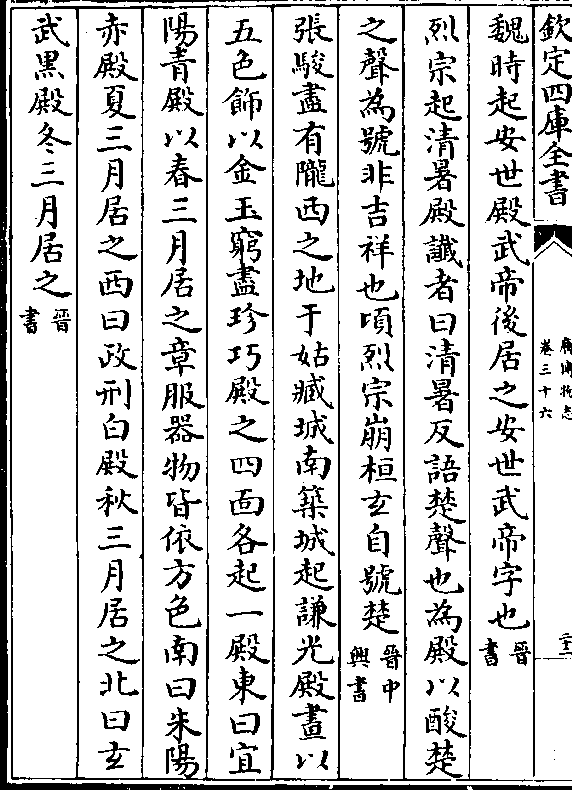 欽定四庫全書
廣博物志
卷三十六
魏時起安世殿武帝後居之安世武帝字也晉書
烈宗起清暑殿讖者曰清暑反語楚聲也為殿以酸楚
之聲為號非吉祥也頃烈宗崩桓玄自號楚晉中興書
張駿盡有隴西之地于姑臧城南築城起謙光殿畫以
五色飾以金玉窮盡珍巧殿之四面各起一殿東曰宜
陽青殿以春三月居之章服器物皆依方色南曰朱陽
赤殿夏三月居之西曰政刑白殿秋三月居之北曰玄
武黑殿冬三月居之晉書